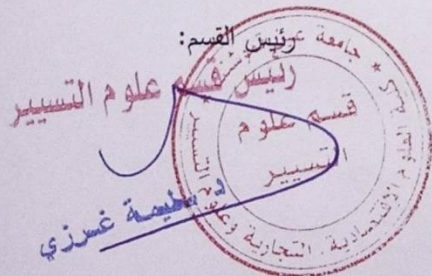 رئيس القسم:
رئيس قسم علوم التسيير
غرزي
جامعة
كلية العلوم الاقتصادية، التجارية وعلوم التسيير
قسم علوم
التسيير